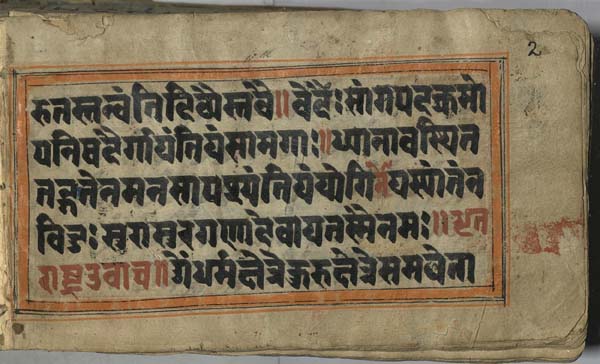 2
रुतस्तुन्वंतिदिव्यैस्तवै॥ वेदैः सांगपदक्रमो
पनिषदैर्गायंतियंसामगाः॥ध्यानावस्थित
तद्गतेनमनसापश्यंतियंयोगिनोयस्यांतंन
विदुः सुरासुरगणादेवायतस्मैनमः॥॥धृत
राष्ट्रउवाच॥ ॐधर्मक्षेत्रेकुरुक्षेत्रेसमवेता